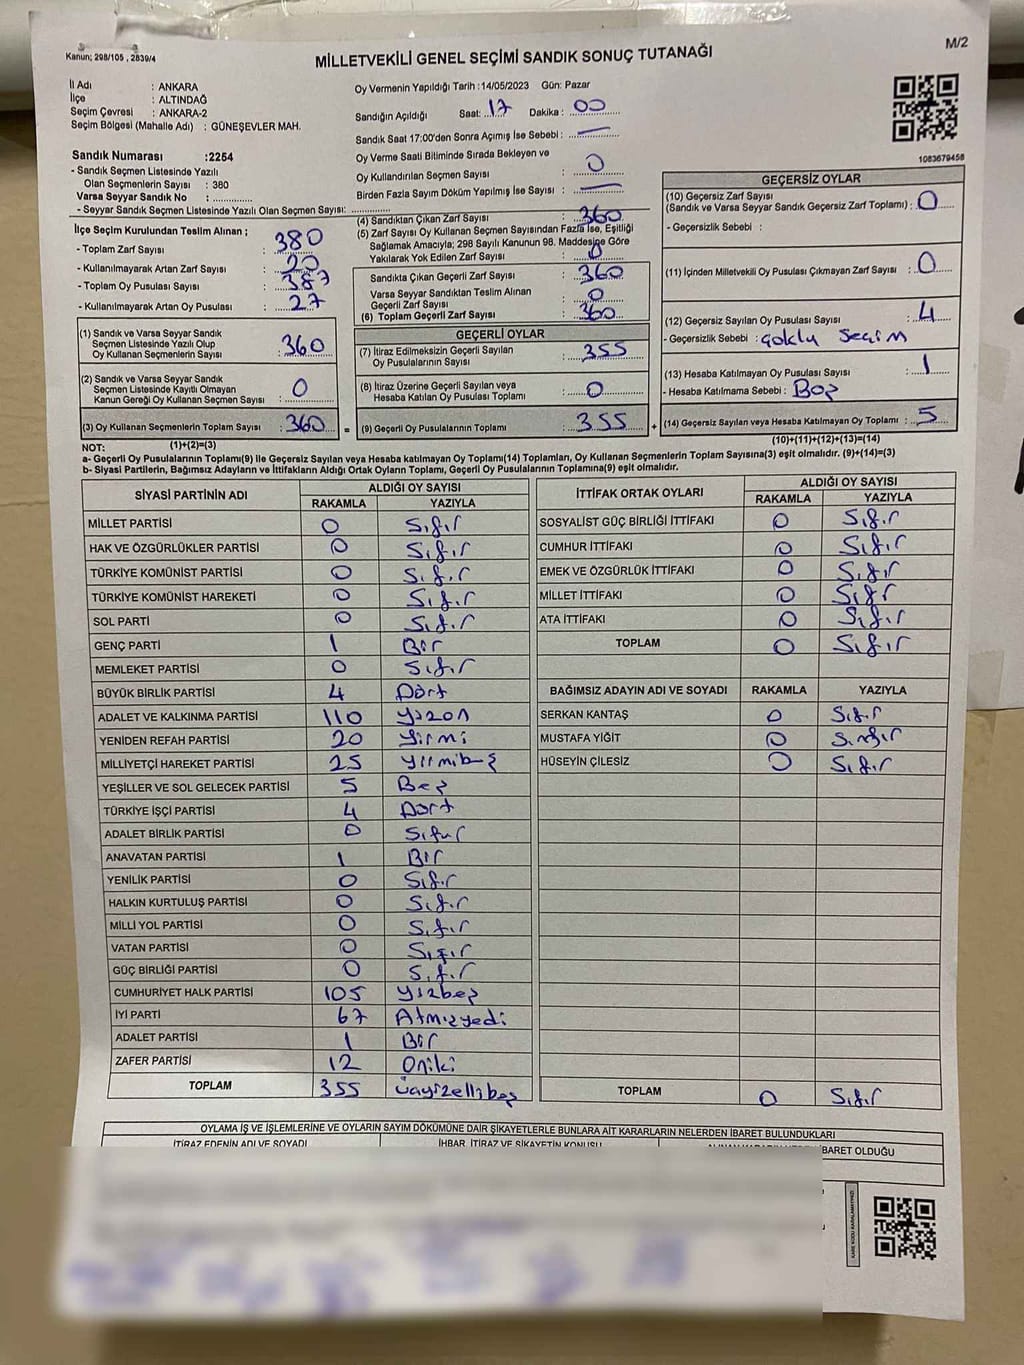 Kanun; 298/105 , 2839/4
MİLLETVEKİLİ GENEL SEÇİMİ SANDIK SONUÇ TUTANAĞI
M/2
İl Adı : ANKARA
İlçe : ALTINDAĞ
Seçim Çevresi : ANKARA-2
Seçim Bölgesi (Mahalle Adı) : GÜNEŞEVLER MAH.
Oy Vermenin Yapıldığı Tarih :14/05/2023 Gün: Pazar
Sandığın Açıldığı Saat: 17 Dakika : 00
Sandık Saat 17:00'den Sonra Açmış İse Sebebi : —
Oy Verme Saati Bitiminde Sırada Bekleyen ve
Oy Kullandırılan Seçmen Sayısı : 0
Birden Fazla Sayım Döküm Yapılmış İse Sayısı : —
1083679458
Sandık Numarası :2254
- Sandık Seçmen Listesinde Yazılı
Olan Seçmenlerin Sayısı : 380
Varsa Seyyar Sandık No :
- Seyyar Sandık Seçmen Listesinde Yazılı Olan Seçmen Sayısı:
İlçe Seçim Kurulundan Teslim Alınan ;
- Toplam Zarf Sayısı : 380
- Kullanılmayarak Artan Zarf Sayısı : 20
- Toplam Oy Pusulası Sayısı : 387
- Kullanılmayarak Artan Oy Pusulası : 27
(1) Sandık ve Varsa Seyyar Sandık
Seçmen Listesinde Yazılı Olup
Oy Kullanan Seçmenlerin Sayısı : 360
(2) Sandık ve Varsa Seyyar Sandık
Seçmen Listesinde Kayıtlı Olmayan
Kanun Gereği Oy Kullanan Seçmen Sayısı : 0
(3) Oy Kullanan Seçmenlerin Toplam Sayısı : 360
(1)+(2)=(3)
(4) Sandıktan Çıkan Zarf Sayısı : 360
(5) Zarf Sayısı Oy Kullanan Seçmen Sayısından Fazla İse, Eşitliği
Sağlamak Amacıyla; 298 Sayılı Kanunun 98. Maddesine Göre
Yakılarak Yok Edilen Zarf Sayısı : 0
Sandıkta Çıkan Geçerli Zarf Sayısı : 360
Varsa Seyyar Sandıktan Teslim Alınan
Geçerli Zarf Sayısı : 0
(6) Toplam Geçerli Zarf Sayısı : 360
GEÇERLİ OYLAR
(7) İtiraz Edilmeksizin Geçerli Sayılan
Oy Pusulalarının Sayısı : 355
(8) İtiraz Üzerine Geçerli Sayılan veya
Hesaba Katılan Oy Pusulası Toplamı : 0
= (9) Geçerli Oy Pusulalarının Toplamı : 355 +
GEÇERSİZ OYLAR
(10) Geçersiz Zarf Sayısı
(Sandık ve Varsa Seyyar Sandık Geçersiz Zarf Toplamı) : 0
- Geçersizlik Sebebi :
(11) İçinden Milletvekili Oy Pusulası Çıkmayan Zarf Sayısı : 0
(12) Geçersiz Sayılan Oy Pusulası Sayısı : 4
- Geçersizlik Sebebi : Çoklu Seçim
(13) Hesaba Katılmayan Oy Pusulası Sayısı : 1
- Hesaba Katılmama Sebebi : Boş
(14) Geçersiz Sayılan veya Hesaba Katılmayan Oy Toplamı : 5
(10)+(11)+(12)+(13)=(14)
NOT:
a- Geçerli Oy Pusulalarının Toplamı(9) ile Geçersiz Sayılan veya Hesaba Katılmayan Oy Toplamı(14) Toplamları, Oy Kullanan Seçmenlerin Toplam Sayısına(3) eşit olmalıdır. (9)+(14)=(3)
b- Siyasi Partilerin, Bağımsız Adayların ve İttifakların Aldığı Ortak Oyların Toplamı, Geçerli Oy Pusulalarının Toplamına(9) eşit olmalıdır.
SİYASİ PARTİNİN ADI ALDIĞI OY SAYISI
RAKAMLA YAZIYLA
MİLLET PARTİSİ 0 Sıfır
HAK VE ÖZGÜRLÜKLER PARTİSİ 0 Sıfır
TÜRKİYE KOMÜNİST PARTİSİ 0 Sıfır
TÜRKİYE KOMÜNİST HAREKETİ 0 Sıfır
SOL PARTİ 0 Sıfır
GENÇ PARTİ 1 Bir
MEMLEKET PARTİSİ 0 Sıfır
BÜYÜK BİRLİK PARTİSİ 4 Dört
ADALET VE KALKINMA PARTİSİ 110 Yüzon
YENİDEN REFAH PARTİSİ 20 Yirmi
MİLLİYETÇİ HAREKET PARTİSİ 25 Yirmibeş
YEŞİLLER VE SOL GELECEK PARTİSİ 5 Beş
TÜRKİYE İŞÇİ PARTİSİ 4 Dört
ADALET BİRLİK PARTİSİ 0 Sıfır
ANAVATAN PARTİSİ 1 Bir
YENİLİK PARTİSİ 0 Sıfır
HALKIN KURTULUŞ PARTİSİ 0 Sıfır
MİLLİ YOL PARTİSİ 0 Sıfır
VATAN PARTİSİ 0 Sıfır
GÜÇ BİRLİĞİ PARTİSİ 0 Sıfır
CUMHURİYET HALK PARTİSİ 105 Yüzbeş
İYİ PARTİ 67 Atmışyedi
ADALET PARTİSİ 1 Bir
ZAFER PARTİSİ 12 Oniki
TOPLAM 355 Üçyüzellibeş
İTTİFAK ORTAK OYLARI ALDIĞI OY SAYISI
RAKAMLA YAZIYLA
SOSYALİST GÜÇ BİRLİĞİ İTTİFAKI 0 Sıfır
CUMHUR İTTİFAKI 0 Sıfır
EMEK VE ÖZGÜRLÜK İTTİFAKI 0 Sıfır
MİLLET İTTİFAKI 0 Sıfır
ATA İTTİFAKI 0 Sıfır
TOPLAM 0 Sıfır
BAĞIMSIZ ADAYIN ADI VE SOYADI RAKAMLA YAZIYLA
SERKAN KANTAŞ 0 Sıfır
MUSTAFA YİĞİT 0 Sıfır
HÜSEYİN ÇİLESİZ 0 Sıfır
TOPLAM 0 Sıfır
OYLAMA İŞ VE İŞLEMLERİNE VE OYLARIN SAYIM DÖKÜMÜNE DAİR ŞİKAYETLERLE BUNLARA AİT KARARLARIN NELERDEN İBARET BULUNDUKLARI
İTİRAZ EDENİN ADI VE SOYADI İHBAR, İTİRAZ VE ŞİKAYETİN KONUSU
İBARET OLDUĞU